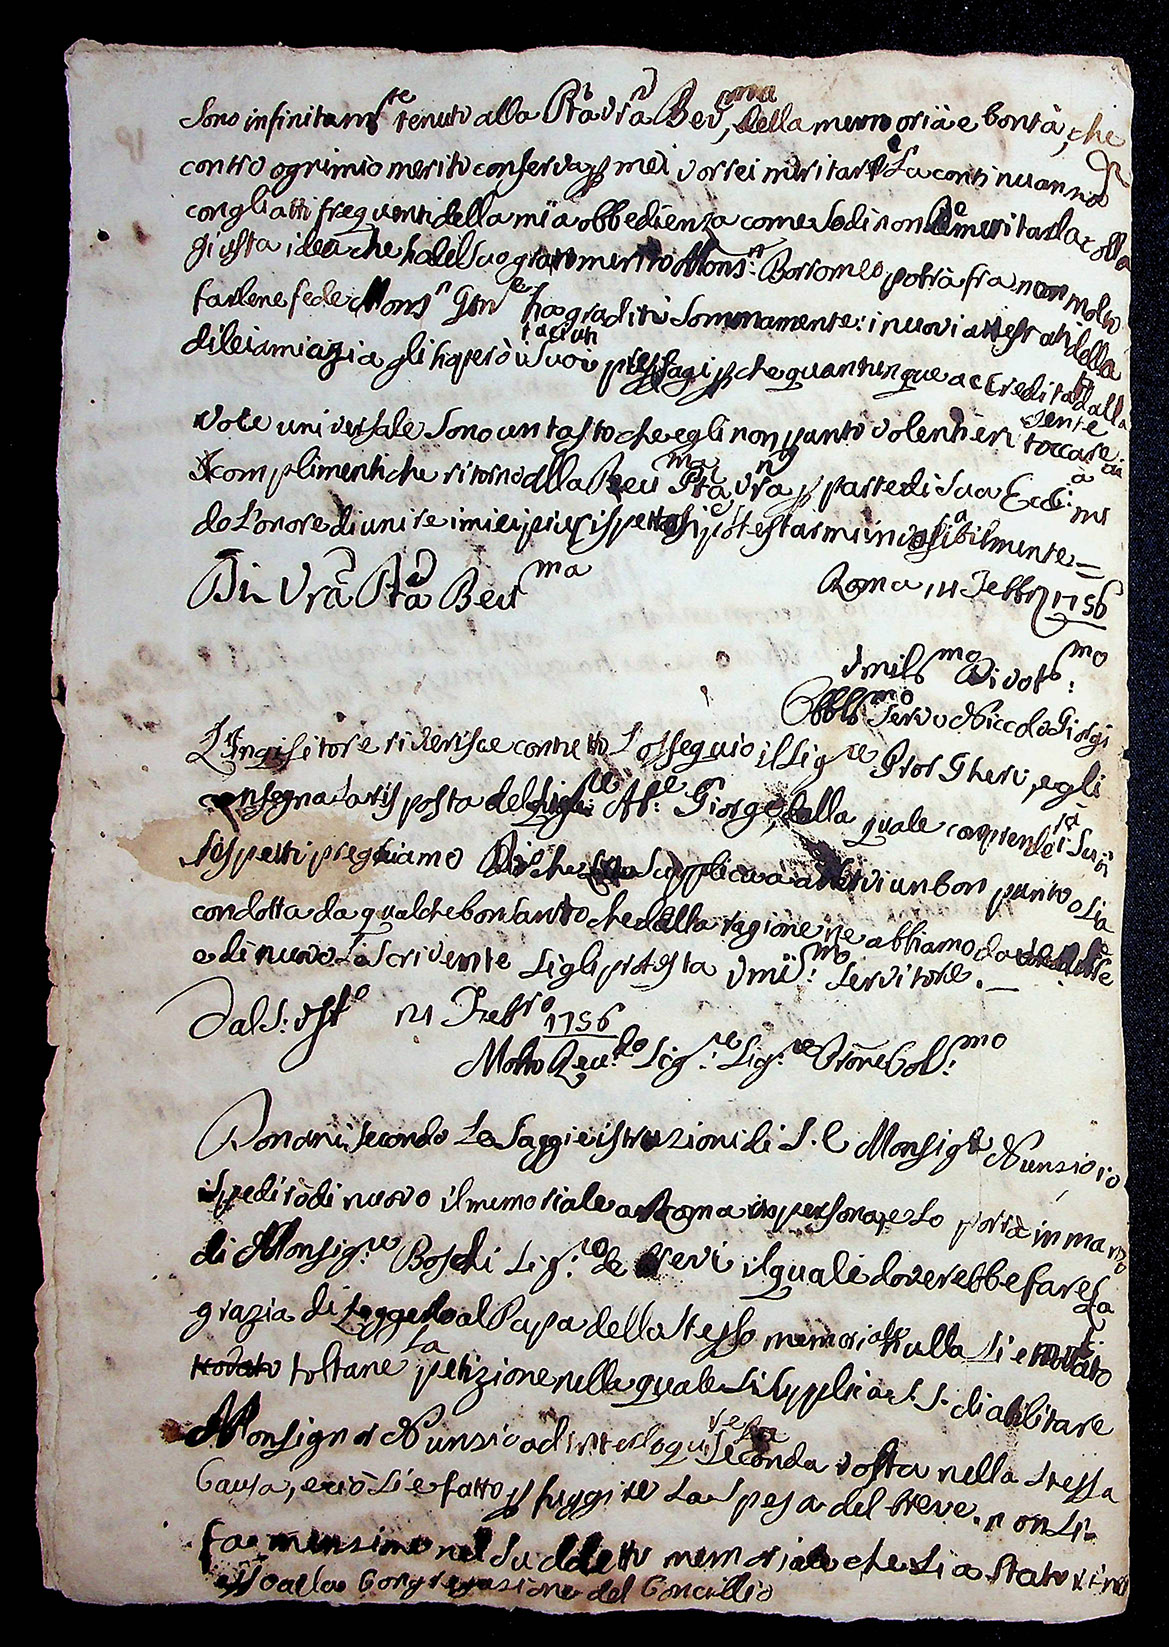 Sono infinitam.te tenuto alla Pta Vra Rev.ma, della memoria e bontà, che
contro ogni mio merito conserva p mei vorrei meritarle La continuanno
con gli atti frequenti della mia obbedienza come So di non demeritarla colla
giusta idea che ho del suo gran merito Mons.r Borromeo potrà fra non molto
farlene fede Mons.r Gov.re ha graditi Sommamente i nuovi attestati della
di lei amicizia gli ho però taciuti i Suoi presagi p che quantunque accreditati dalla
voce universale Sono un tasto che egli non punto volentieri sente toccare.
I complimenti che ritorno alla Rev.ma Pta Vra p parte di Sua Ecc.a mi
do L'onore di unire i miei più rispettosi, e protestarmi inva.bilmente =
Di Vra Pta Rev.ma Roma 14 Febbr 1756
Umils.mo Divot.mo
Obbl.mo Servo Niccolò Giorgi
L'Ingisitore riverisce con tutto L'ossequio il Sig.re Prior Gheri, e gli
consegna La risposta del A.te Giorgi, dalla quale comprenderà i Suoi
rispetti preghiamo Dio che Supplica a aver un bon punto o sia
condotta da qualche bon Santo che della ragione ne abbiamo da
e di nuovo Lo Scrivente Si gli protesta Umil.mo Servitore. _
Dal S: Uff.o 21 Febbr.o 1756
Molto Rev.do Sig.re Sig.re Prone Col.mo
Domani Secondo Le Saggie istruzioni di S. E. Monsig.re Nunzio io
ispedirò di nuovo il memoriale a Roma in persona, e Lo porrà in mano
di Monsig.re Boschi Seg.rio de brevi il quale doverebbe fare La
grazia di Leggerlo al Papa dello Stesso memoriale nulla Si è mutato
toltane La petizione nella quale Si Supplica S. S. di abilitare
Monsignor Nunzio ad interloquire Seconda volta nella Stessa
Causa, e ciò Si è fatto p fuggire La Spesa del breve. non Si
fa menzione nel Suddetto memoriale che Sia Stato rimesso
alla Congregazione del Concilio